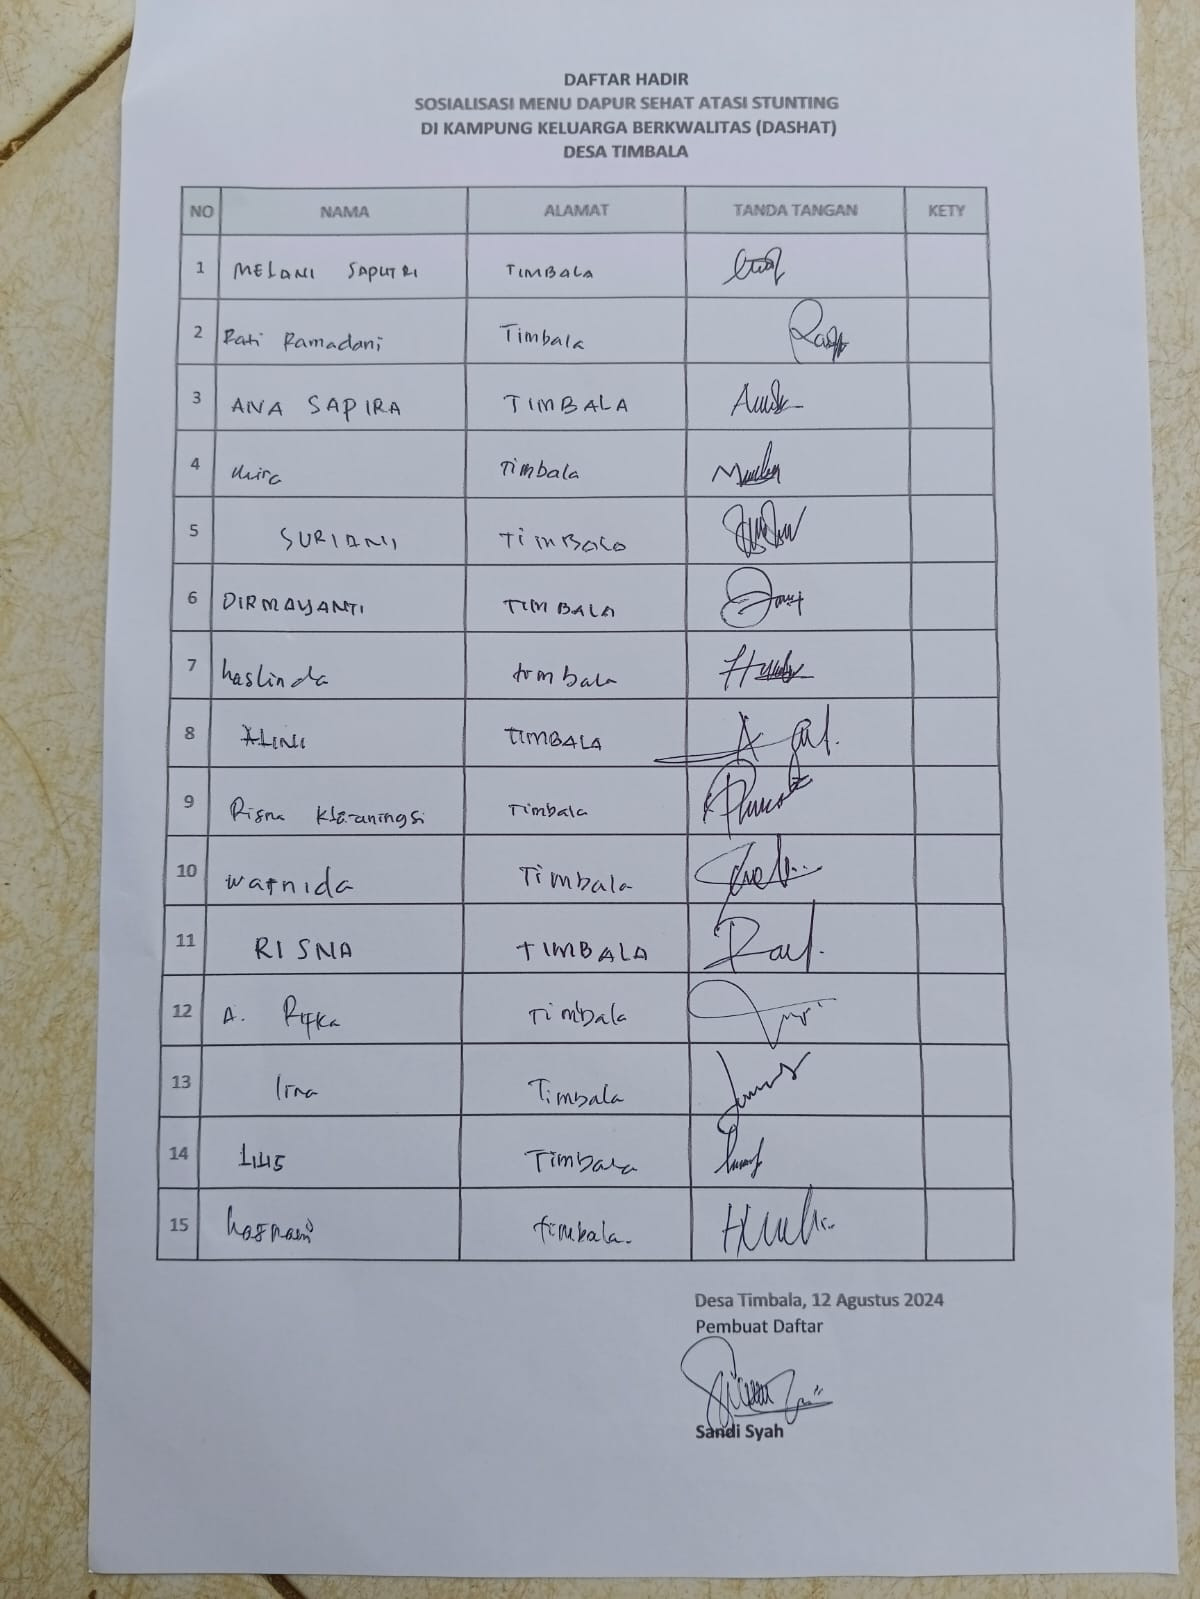 DAFTAR HADIR
SOSIALISASI MENU DAPUR SEHAT ATASI STUNTING
DI KAMPUNG KELUARGA BERKWALITAS (DASHAT)
DESA TIMBALA
NO NAMA ALAMAT TANDA TANGAN KETY
1 MELANI SAPUTRI TIMBALA
2 Rati Ramadani Timbala
3 ANA SAPIRA TIMBALA
4 Mira Timbala
5 SURIANI TIMBALA
6 DIRMAYANTI TIMBALA
7 haslinda timbala
8 ALINI TIMBALA
9 Risna Timbala
10 warnida Timbala
11 RISNA TIMBALA
12 A. Rifka Timbala
13 Irna Timbala
14 Timbala
15 hasnani timbala.
Desa Timbala, 12 Agustus 2024
Pembuat Daftar
Sandi Syah